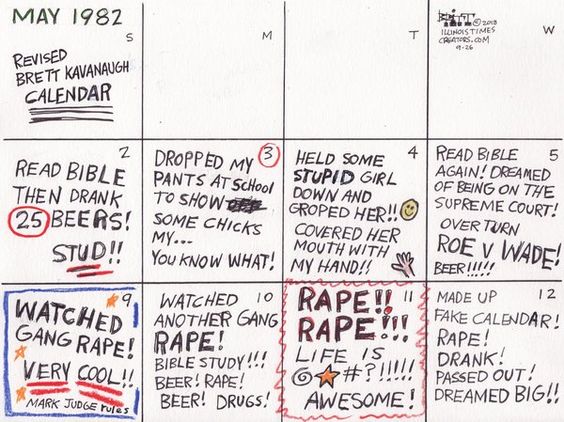 MAY 1982
S
M
T
W
REVISED
BRETT KAVANAUGH
CALENDAR
BRITT ©2018
ILLINOIS TIMES
CREATORS.COM
9-26
2
READ BIBLE
THEN DRANK
25 BEERS!
STUD!!
3
DROPPED MY
PANTS AT SCHOOL
TO SHOW
SOME CHICKS
MY...
YOU KNOW WHAT!
4
HELD SOME
STUPID GIRL
DOWN AND
GROPED HER!!
COVERED HER
MOUTH WITH
MY HAND!!
5
READ BIBLE
AGAIN! DREAMED
OF BEING ON THE
SUPREME COURT!
OVERTURN
ROE V WADE!
BEER!!!!!
9
WATCHED
GANG RAPE!
VERY COOL!!
MARK JUDGE rules
10
WATCHED
ANOTHER GANG
RAPE!
BIBLE STUDY!!!
BEER! RAPE!
BEER! DRUGS!
11
RAPE!!
RAPE!!!
LIFE IS
#?!!!!!
AWESOME!
12
MADE UP
FAKE CALENDAR!
RAPE!
DRANK!
PASSED OUT!
DREAMED BIG!!